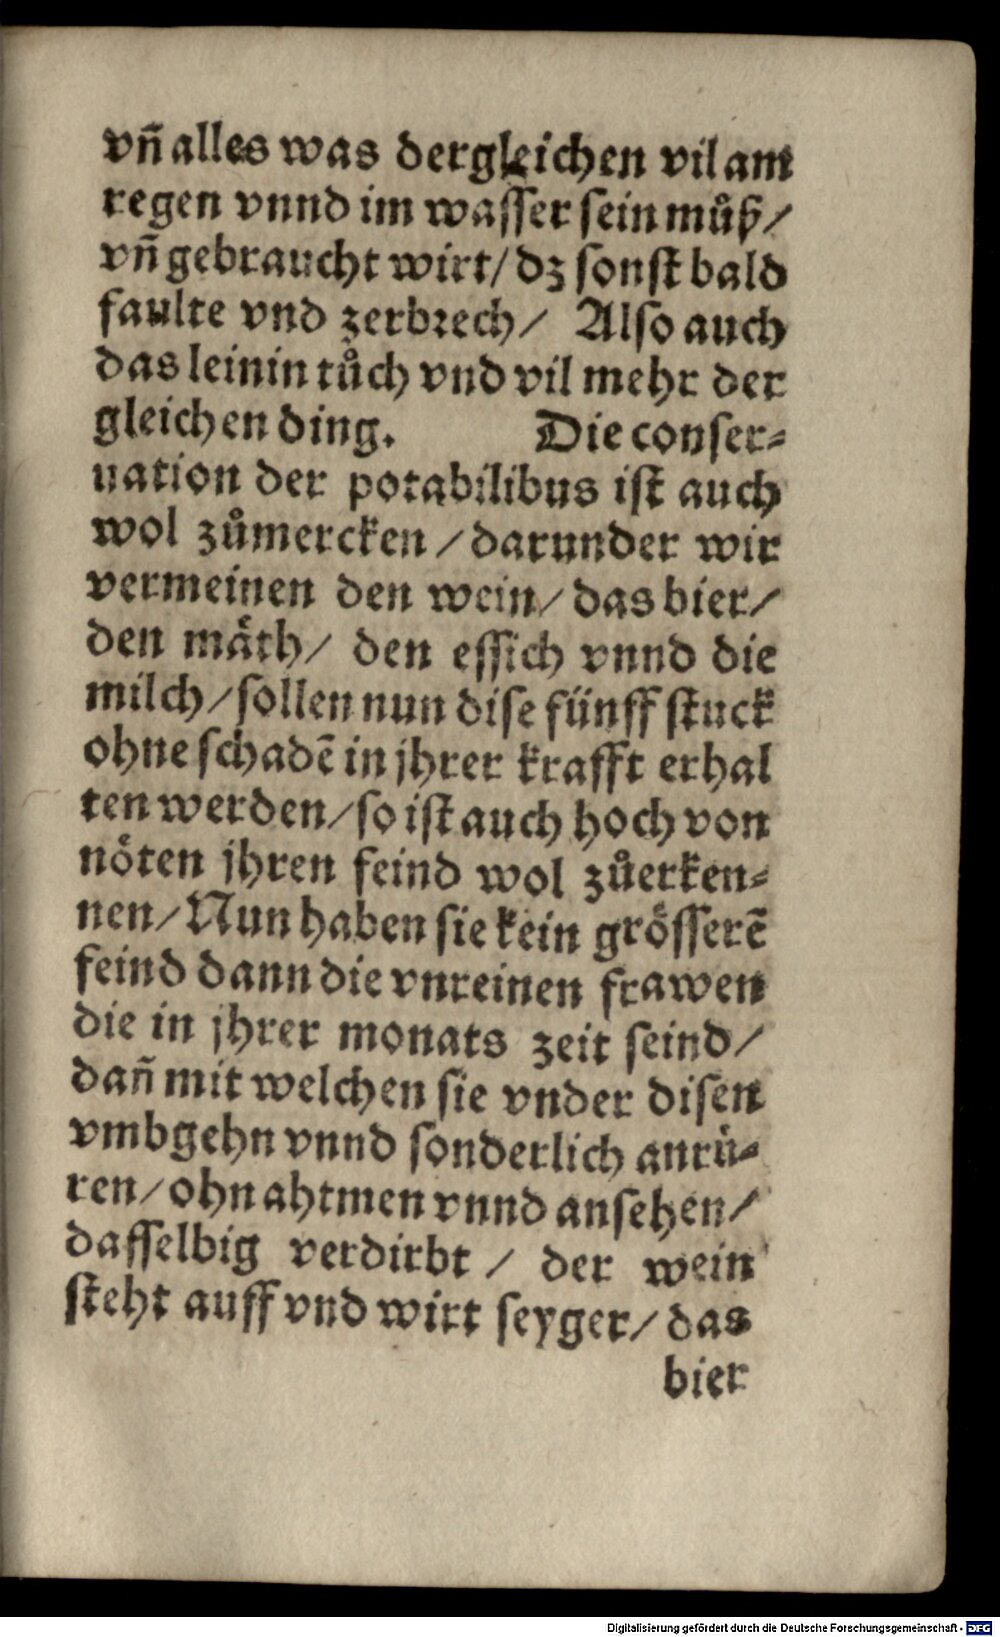 vñ alles was dergleichen vil am
regen vnnd im wasser sein můß/
vñ gebraucht wirt/ dz sonst bald
faulte vnd zerbrech/ Also auch
das leinin tůch vnd vil mehr der
gleichen ding. Die conser⸗
uation der potabilibus ist auch
wol zůmercken / darunder wir
vermeinen den wein/ das bier/
den mäth/ den essich vnnd die
milch/ sollen nun dise fünff stuck
ohne schadē in jhrer krafft erhal
ten werden/ so ist auch hoch von
nöten jhren feind wol zůerken⸗
nen/ Nun haben sie kein grösserē
feind dann die vnreinen frawen
die in jhrer monats zeit seind/
dañ mit welchen sie vnder disen
vmbgehn vnnd sonderlich anrü⸗
ren/ ohn ahtmen vnnd ansehen/
dasselbig verdirbt / der wein
steht auff vnd wirt seyger/ das
bier
Digitalisierung gefördert durch die Deutsche Forschungsgemeinschaft - DFG